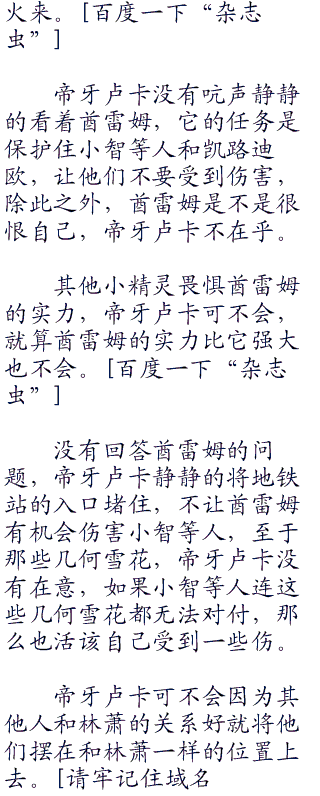 火来。[百度一下“杂志
虫”]
帝牙卢卡没有吭声静静
的看着酋雷姆，它的任务是
保护住小智等人和凯路迪
欧，让他们不要受到伤害，
除此之外，酋雷姆是不是很
恨自己，帝牙卢卡不在乎。
其他小精灵畏惧酋雷姆
的实力，帝牙卢卡可不会，
就算酋雷姆的实力比它强大
也不会。[百度一下“杂志
虫”]
没有回答酋雷姆的问
题，帝牙卢卡静静的将地铁
站的入口堵住，不让酋雷姆
有机会伤害小智等人，至于
那些几何雪花，帝牙卢卡没
有在意，如果小智等人连这
些几何雪花都无法对付，那
么也活该自己受到一些伤。
帝牙卢卡可不会因为其
他人和林萧的关系好就将他
们摆在和林萧一样的位置上
去。[请牢记住域名